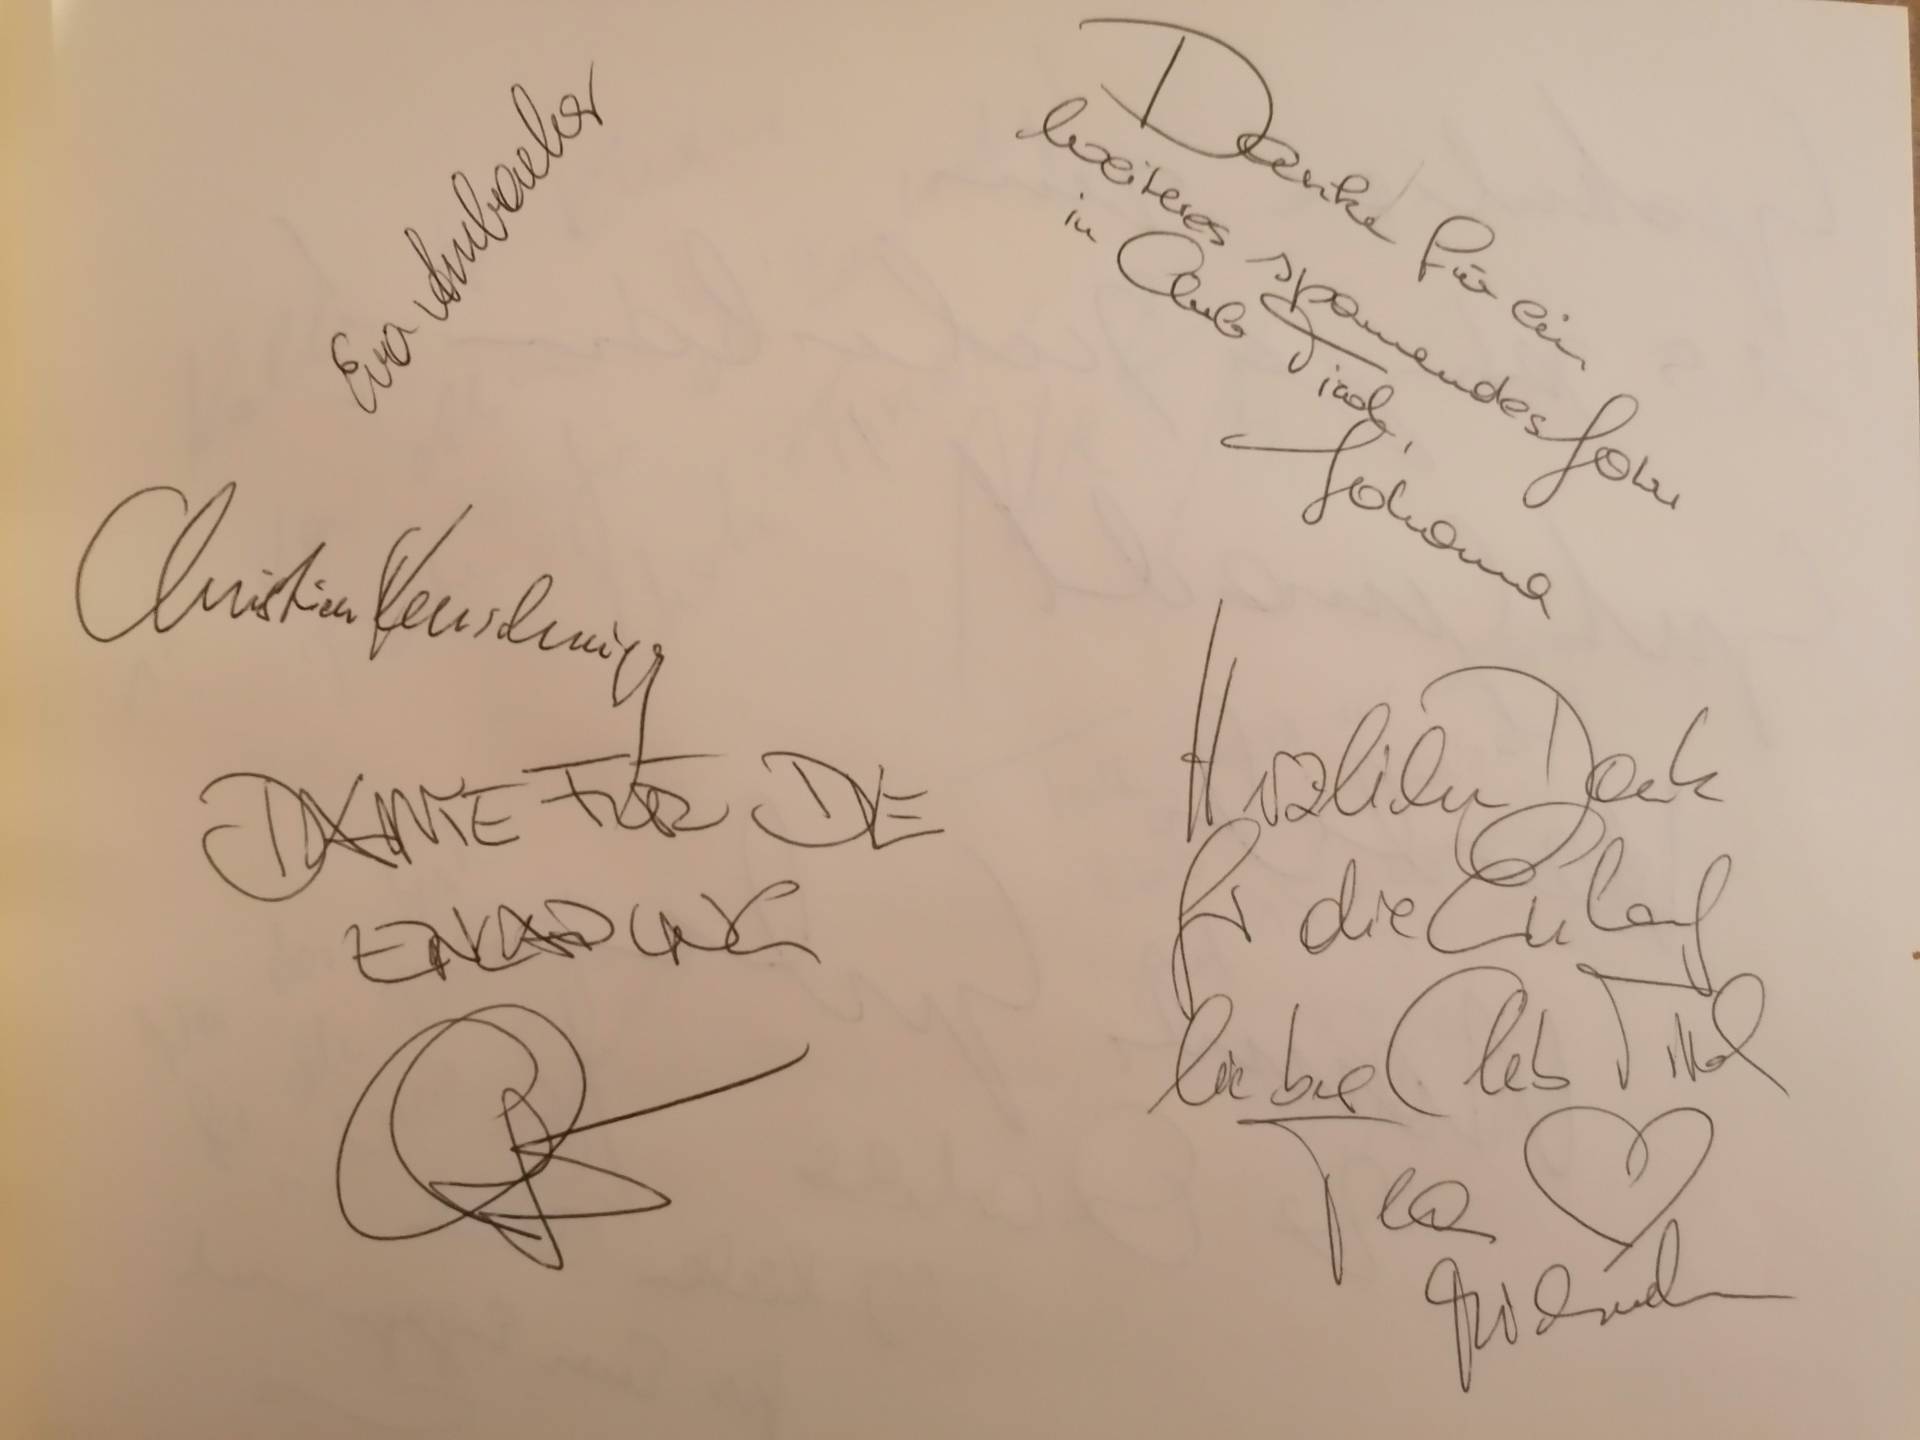 Eva Ambacher
Christian Kerschning
DANKE FÜR DIE
EINLADUNG
Danke für ein
weiteres spannendes Jahr
im Club Tirol,
Johanna
Herzlichen Dank
für die Einladung
lieber Club Tirol
Tea